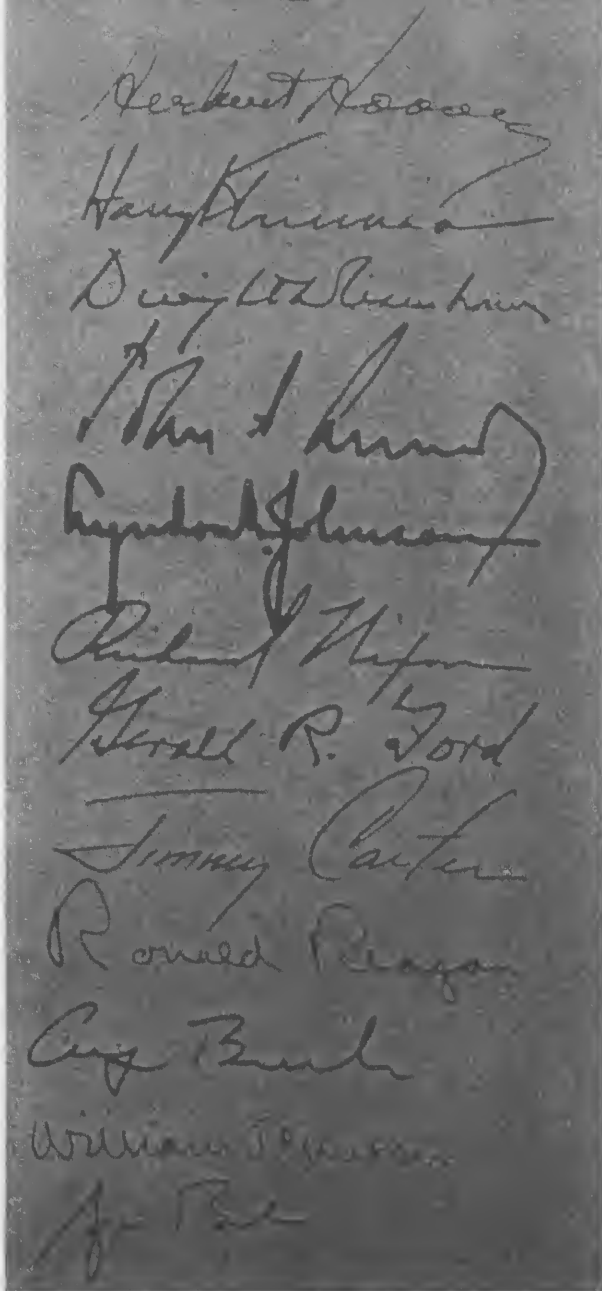 Herbert Hoover
Harry Truman
Dwight D Eisenhower
John F Kennedy
Lyndon B. Johnson
Richard Nixon
Gerald R. Ford
Jimmy Carter
Ronald Reagan
George Bush
William J Clinton
Bush